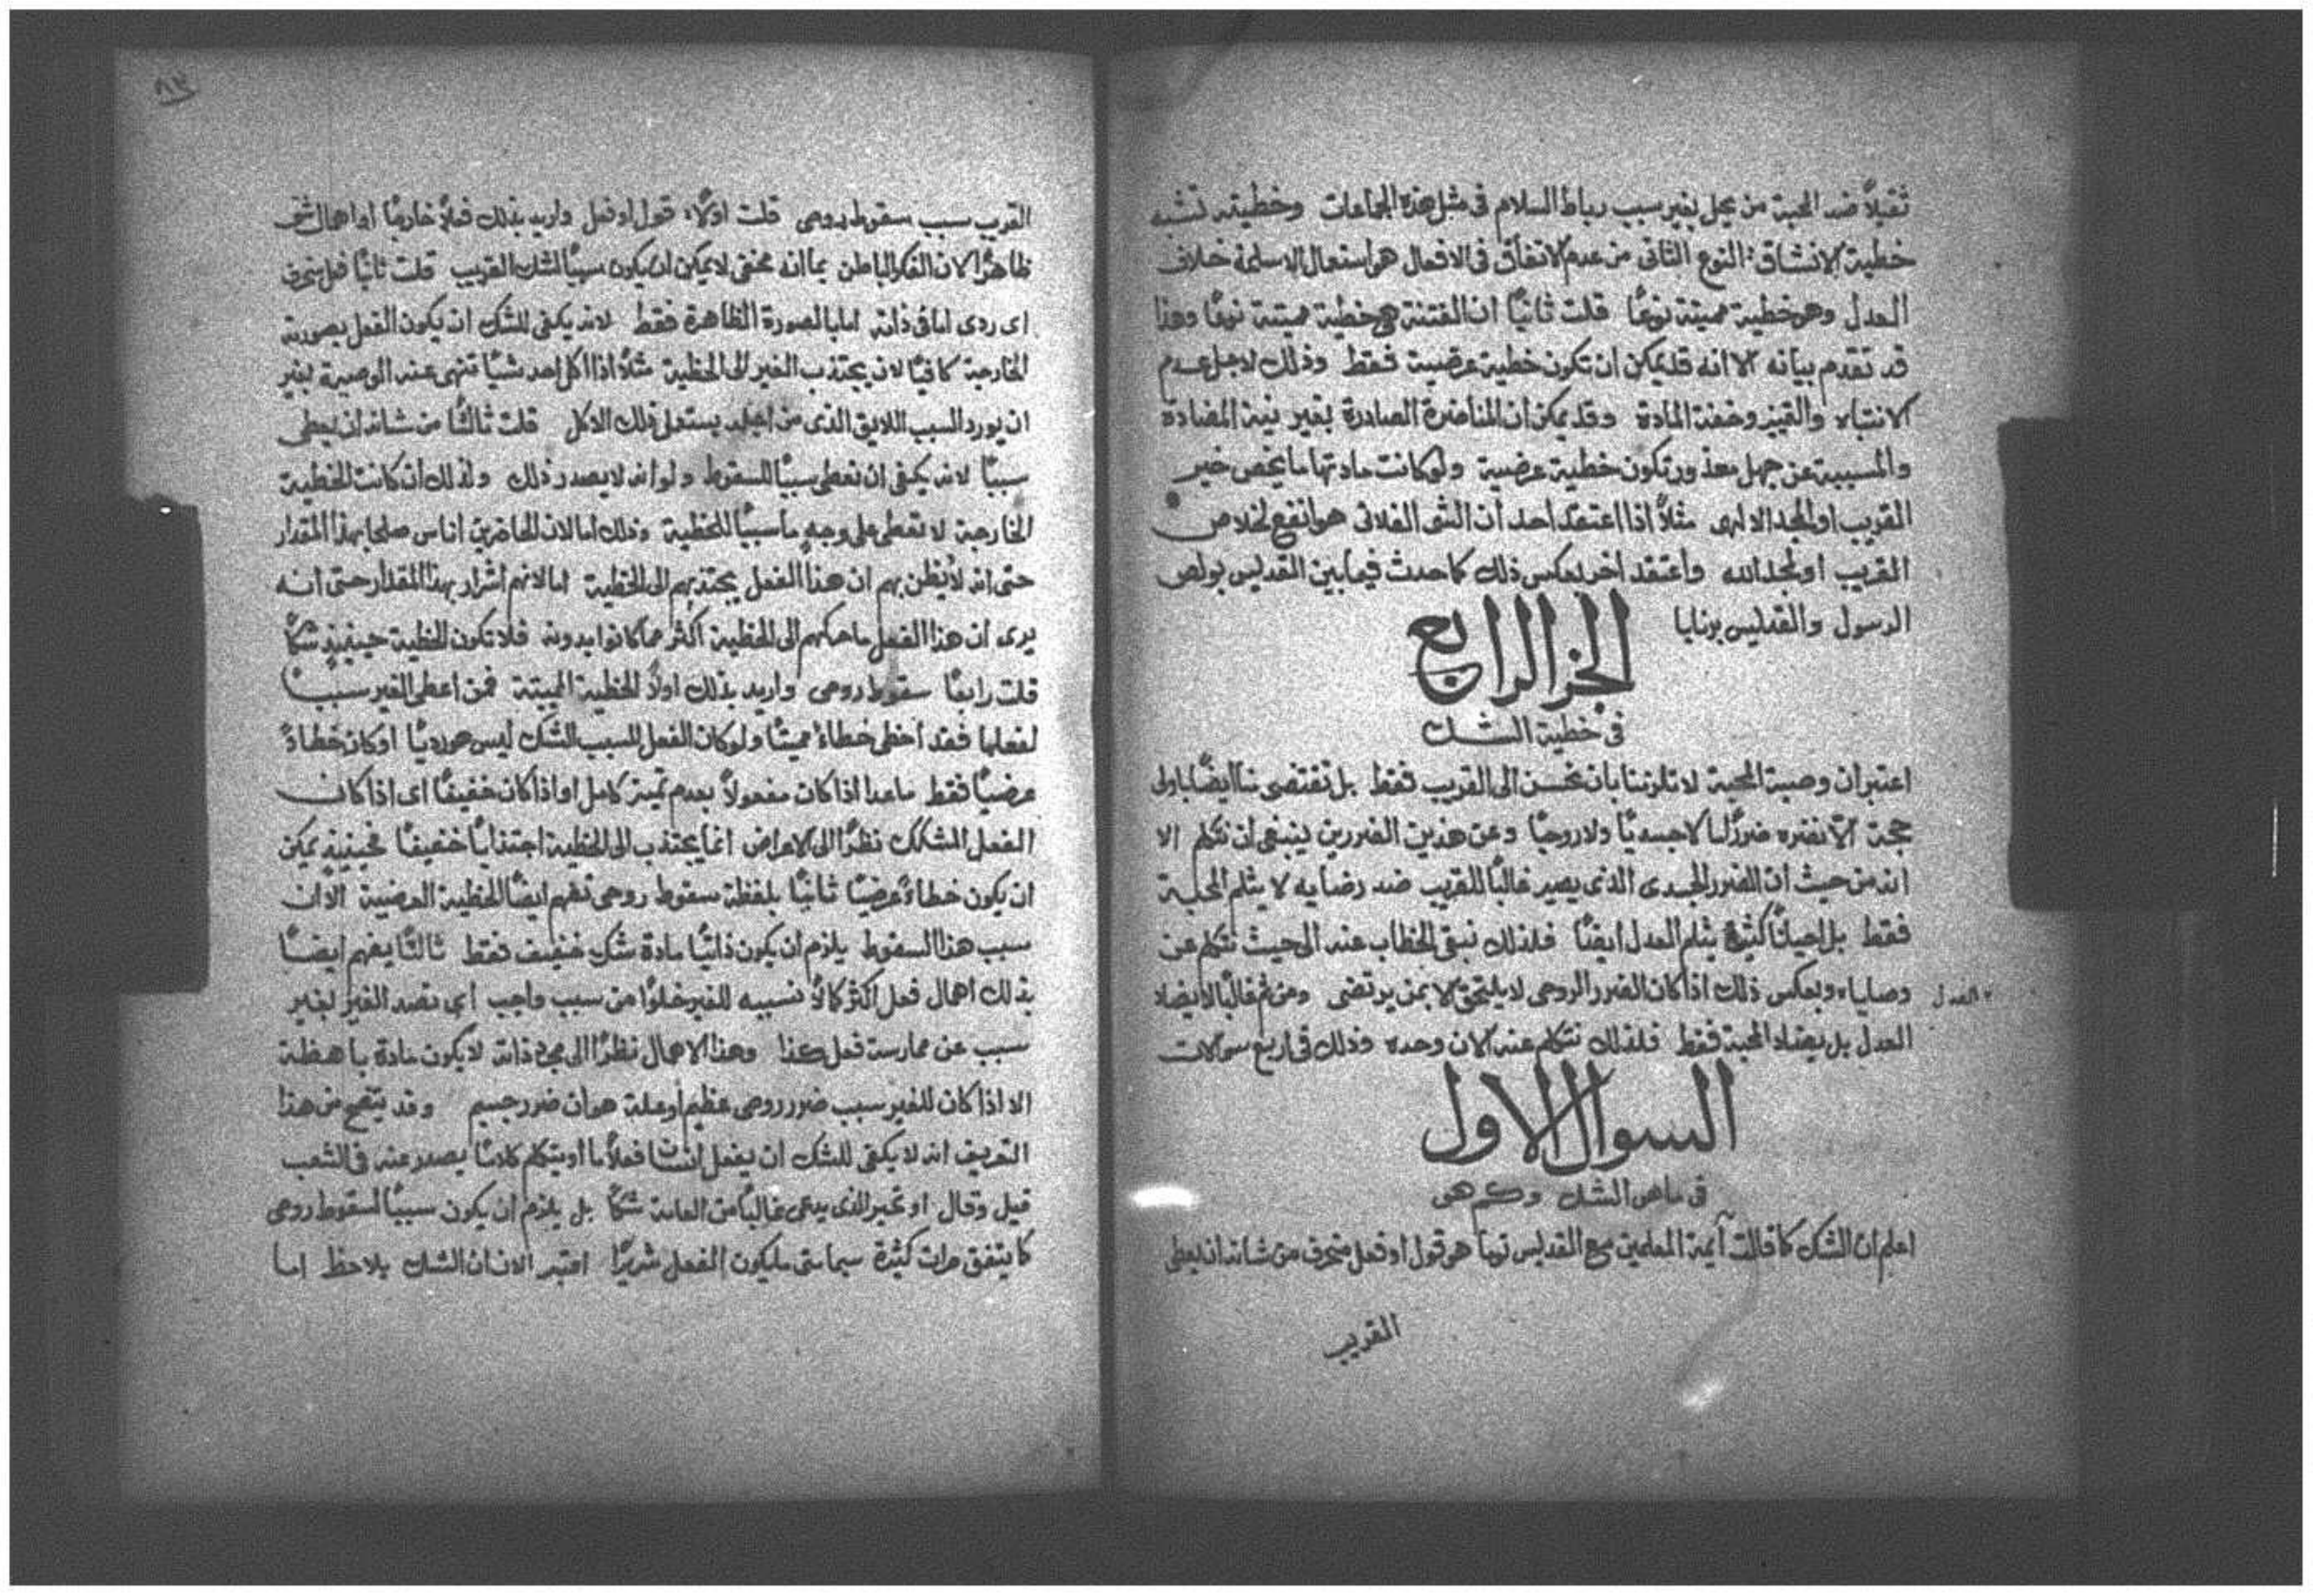 ثقيلاً ضد المحبة من يحل بغير سبب رباط السلام فى مثل هذه الجماعات وخطيته تشبه
خطية الانشقاق النوع الثانى من عدم الاتفاق فى الافعال هو استعمال الاسلحة خلاف
العدل وهو خطية مميتة نوعًا قلت ثانيًا ان الفتنة هى خطية مميتة نوعًا وهذا
قد تقدم بيانه الا انه قد يمكن ان تكون خطية عرضية فقط وذلك لاجل عدم
الانتباه والتميز وخفة المادة وقد يمكن ان المناضرة الصادرة بغير نية المضادة
والمسببة عن جهل معذور تكون خطية عرضية ولو كانت مادتها ما يخص خير
القريب او المجد الالهى مثلاً اذا اعتقد احد ان الشى الفلانى هو انفع لخلاص
القريب او لمجد الله واعتقد اخر بعكس ذلك كما حدث فيما بين القديس بولص
الرسول والقديس برنابا
الجز الرابع
فى خطية الشك
اعتبر ان وصية المحبة لا تلزمنا بان نحسن الى القريب فقط بل تقتضى منا ايضًا باولى
حجة الّا نضره ضررًا لا جسديًا ولا روحيًا وعن هذين الضررين ينبغى ان نتكلم الا
انه من حيث ان الضرر الجسدى الذى يصير غالبًا للقريب ضد رضايه لا يثلم المحبة
فقط بل احيانًا كثيرة يثلم العدل ايضًا فلذلك نبقى الخطاب عنه الى حيث نتكلم عن
وصاياه وبعكس ذلك اذا كان الضرر الروحى لا يلتحق الا بمن يرتضى ومن ثم غالبًا لا يضاد
العدل
العدل بل يضاد المحبة فقط فلذلك نتكلم عنه الان وحده وذلك فى اربع سوالات
السوال الاول
فى ما هو الشك وكم هو
اعلم ان الشك كما قالت آيمة المعلمين مع القديس توما هو قول او فعل منحرف من شانه ان يعطى
القريب
٨٣
القريب سبب سقوط روحى قلت اولاً قول او فعل واريد بذلك فعلاً خارجًا او اهمال شى
ظاهرًا لان الفكر الباطن بما انه مخفى لا يمكن ان يكون سببًا لشك القريب قلت ثانيًا فعل منحرف
اى ردى اما فى ذاته اما بالصورة الظاهرة فقط لانه يكفى للشك ان يكون الفعل بصورته
الخارجة كافيًا لان يجتذب الغير الى الخطية مثلاً اذا اكل احد شيًا تنهى عنه الوصية بغير
ان يورد السبب اللايق الذى من اجله يستعمل ذلك الاكل قلت ثالثًا من شانه ان يعطى
سببًا لانه يكفى ان نعطى سببًا للسقوط ولو انه لا يصدر ذلك ولذلك ان كانت الخطية
الخارجة لا تعطى على وجهٍ ما سببًا للخطية وذلك اما لان الحاضرين اناس صلحا بهذا المقدار
حتى انه لا يظن بهم ان هذا الفعل يجتذبهم الى الخطية اما لانهم اشرار بهذا المقدار حتى انه
يرى ان هذا الفعل ما حركهم الى الخطية اكثر مما كانوا بدونه فلا تكون الخطية حينيذٍ شكًا
قلت رابعًا سقوط روحى واريد بذلك اولاً الخطية المميتة فمن اعطى الغير سببًا
لفعلها فقد اخطى خطاءً مميتًا ولو كان الفعل المسبب الشك ليس هو رديًا او كان خطاءً
عرضيًا فقط ما عدا اذا كان مفعولاً بعدم تميز كامل او اذا كان خفيفًا اى اذا كان
الفعل المشكك نظرًا الى الاعراض انما يجتذب الى الخطية اجتذابًا خفيفًا فحينيذٍ يمكن
ان يكون خطاءً عرضيًا ثانيًا بلفظة سقوط روحى تفهم ايضًا الخطية العرضية الا ان
سبب هذا السقوط يلزم ان يكون ذاتيًا مادة شك خفيف فقط ثالثًا يفهم ايضًا
بذلك اهمال فعل اكثر كمالاً نسببه للغير خلوًا من سبب واجب اى نصد الغير بغير
سبب عن ممارسة فعل كذا وهذا الاهمال نظرًا الى مجرد ذاته لا يكون مادة باهظة
الا اذا كان للغير سبب ضرر روحى عظيم او علة هوان ضرر جسيم وقد يتضح من هذا
التعريف انه لا يكفى للشك ان يفعل انسان فعلاً ما او يتكلم كلامًا يصدر عنه فى الشعب
قيل وقال او تحير الذى يدعى غالبًا من العامة شكًا بل يلزم ان يكون سببًا لسقوط روحى
كما يتفق مرات كثيرة سيما متى ما يكون الفعل شريرًا اعتبر الان ان الشك يلاحظ اما